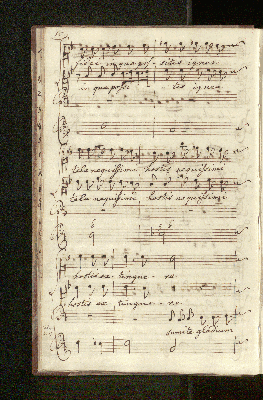 fidei in qua pos - sitis ignea
in qua possi - tis ignea
tela nequissimi hostis nequissimi
tela nequissimi hostis nequissimi
6
6 5
hostis ex - tingue - re
hostis ex tingue - re
sumite gladium